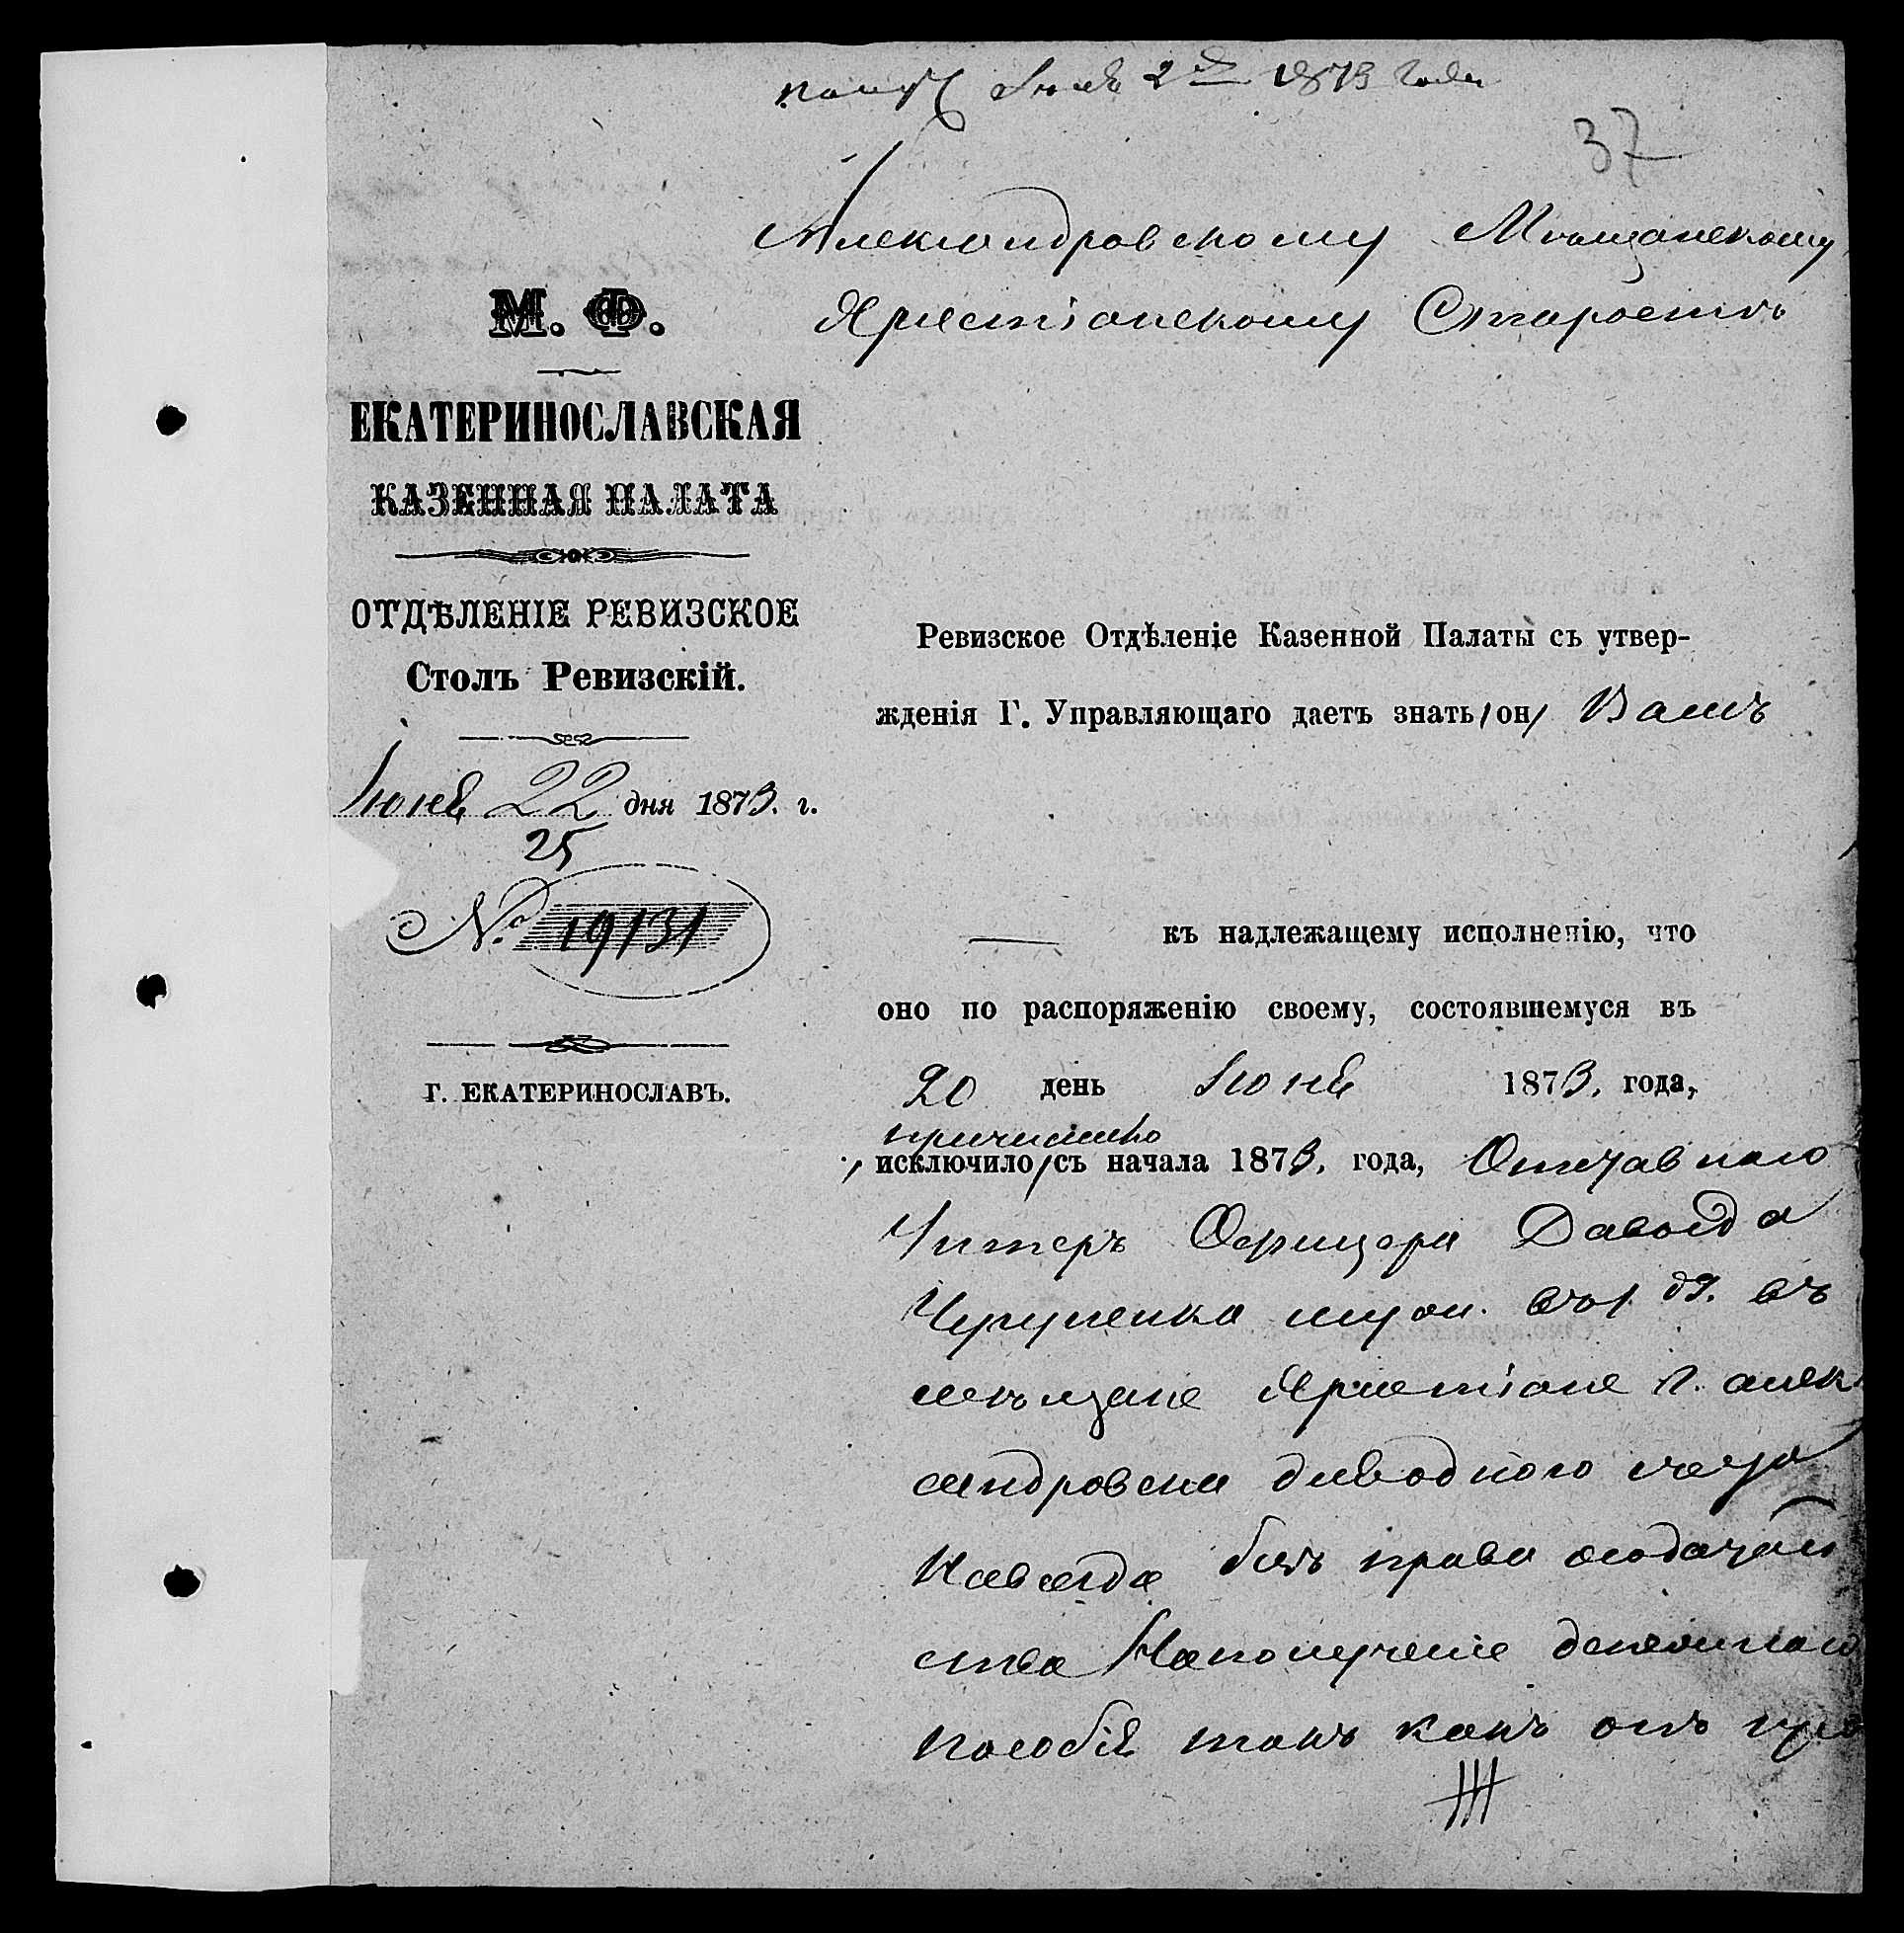 2 1873 года
37
Александровскому Мѣщанскому
Христіанскому Старостѣ
М. Ф.
ЕКАТЕРИНОСЛАВСКАЯ
КАЗЕННАЯ ПАЛАТА
ОТДѢЛЕНІЕ РЕВИЗСКОЕ
Столъ Ревизскій.
Іюня 22 дня 1873. г.
25
№ 19131
Г. ЕКАТЕРИНОСЛАВЪ.
Ревизское Отдѣленіе Казенной Палаты съ утвер-
жденія Г. Управляющаго даетъ знать (он) Вамъ
къ надлежащему исполненію, что
оно по распоряженію своему, состоявшемуся въ
20 день Іюня 1873. года,
причислило
исключило съ начала 1873. года, Отставного
Унтеръ Офицера Давыда
въ 1. д. въ
мѣщане Христіане г. Алек
сандровска
Навсегда безъ права ходатай
ства Наполученіе денежнаго
пособія такъ какъ онъ